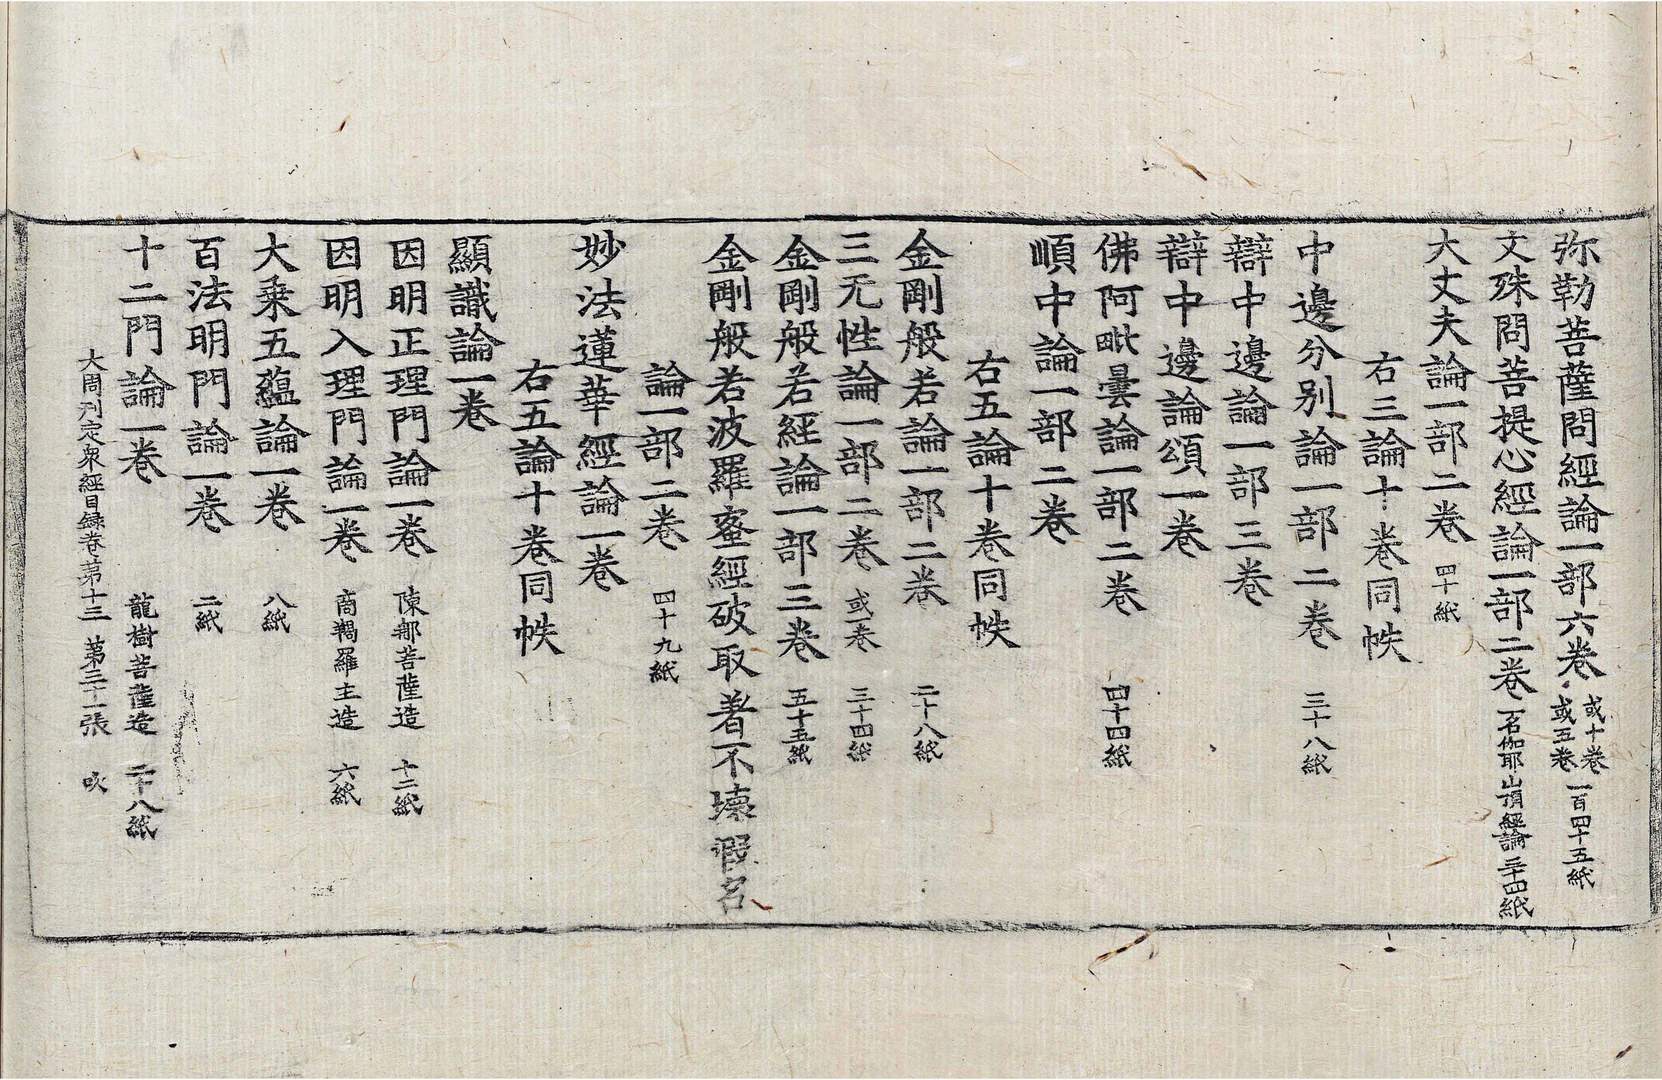 弥勒菩薩問經論一部六卷 或十卷 或五卷 一百四十五紙
文殊問菩提心經論一部二卷 一名伽耶山頂經論 三十四紙
大丈夫論一部二卷 四十紙
右三論十卷同帙
中邊分別論一部二卷 三十八紙
辯中邊論一部三卷
辯中邊論頌一卷
佛阿毗曇論一部二卷 四十四紙
順中論一部二卷
右五論十卷同帙
金剛般若論一部二卷 二十八紙
三无性論一部二卷 或一卷 三十四紙
金剛般若經論一部三卷 五十五紙
金剛般若波羅蜜經破取著不壞假名
論一部二卷 四十九紙
妙法蓮華經論一卷
右五論十卷同帙
顯識論一卷
因明正理門論一卷 陳郍菩薩造 十二紙
因明入理門論一卷 商羯羅主造 六紙
大乗五蘊論一卷 八紙
百法明門論一卷 二紙
十二門論一卷 龍樹菩薩造 二十八紙
大周刋定衆經目録卷苐十三 第三十一張 吹